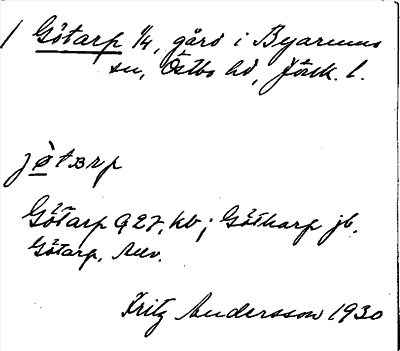 / Götarp 1/4, gård i Byarums
sn, Östbo hd, Jönk. l.
jø̀tarp
Götarp 927, kb; Götharp jb,
Götarp,
Fritz Andersson 1930